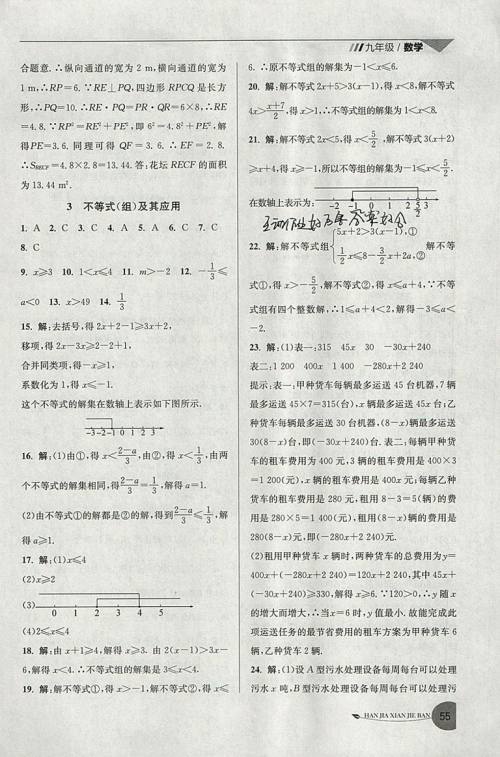 九年级/数学
合题意.∴纵向通道的宽为 2 m,横向通道的宽为
1 m,∴RP=6.∵RE⊥PQ,四边形 RPCQ 是长方
形,∴PQ=10.∵RE×PQ=PR·QR=6×8,∴RE
=4.8.∵RP²=RE²+PE²,即 6²=4.8²+PE²,解
得PE=3.6.同理可得 QF=3.6.∴EF=2.8.
∴S_RECF=4.8×2.8=13.44.答:花坛 RECF 的面积
为 13.44 m².
3 不等式(组)及其应用
1. A 2. C 3. C 4. A 5. A 6. C 7. C
8. C
9. x≥3 10. 1<x≤4 11. m>-2 12. -1/3≤
a<0 13. x>49 14. 1/3
15. 解:去括号,得 2x+2-1≥3x+2,
移项,得 2x-3x≥2-2+1,
合并同类项,得-x≥1,
系数化为 1,得 x≤-1.
这个不等式的解集在数轴上表示如下图所示.
-3-2-1 0 1 2 3
16. 解:(1)由①,得 x<(2-a)/3,由②,得 x<1/3,由两
个不等式的解集相同,得(2-a)/3=1/3,解得 a=1.
(2)由不等式①的解都是②的解,得(2-a)/3≤1/3,解得
a≥1.
17. 解:(1)x≤4
(2)x≥2
(3) 0 1 2 3 4 5
(4)2≤x≤4
18. 解:由 x+1≥4,解得 x≥3.由 2x-2<6,解
得 x<4.∴不等式组的解集为 3≤x<4.
19. 解:解不等式①,得 x>-1,解不等式②,得 x≤
6.∴原不等式组的解集为-1<x≤6.
20. 解:解不等式 2x+5>3(x-1),得 x<8,解不等式
4x>(x+7)/2,得 x>1,∴不等式组的解集为 1<x<8.
21. 解:解不等式 2x<5,得 x<5/2,解不等式 3(x+2)
≥x+4,得 x≥-1,所以不等式组的解集为-1≤x<5/2.
在数轴上表示为: -2 -1 0 1 2 5/2 3
22. 解:解不等式组{5x+2>3(x-1),①
1/2x≤8-3/2x+2a,② 解不等
式①,得 x>-5/2,解不等式②,得 x≤a+4,∵不等
式组有四个整数解,∴1≤a+4<2,解得-3≤a<
-2.
23. 解:(1)表一:315 45x 30 -30x+240
表二:1 200 400x 1 400 -280x+2 240
提示:表一:甲种货车每辆最多运送 45 台机器,7 辆
最多运送 45×7=315(台),x 辆最多运送 45x(台).
乙种货车每辆最多运送 30 台机器,(8-x)辆运送
30(8-x)台,即(-30x+240)台.表二:每辆甲种货
车的租车费用为 400 元,3 辆的租车费用是 400×3
=1 200(元),x 辆的费用是 400x(元);每辆乙种货
车的租车费用是 280 元,租用 8-3=5(辆)的费用
是 280×5=1 400(元),租用(8-x)辆的费用是
280(8-x)元,即(-280x+2 240)元.
(2)租用甲种货车 x 辆时,两种货车的总费用为 y=
400x+(-280x+2 240)=120x+2 240,其中 45x
+(-30x+240)≥330,解得 x≥6.∵120>0,∴y 随x
的增大而增大,∴当 x=6 时,y 最小.故能完成此
项运送任务的最节省费用的租车方案为甲种货车 6
辆,乙种货车 2 辆.
24. 解:(1)设 A 型污水处理设备每周每台可以处理
污水 x 吨,B 型污水处理设备每周每台可以处理污
HAN JIA XIAN JIE BAN
55